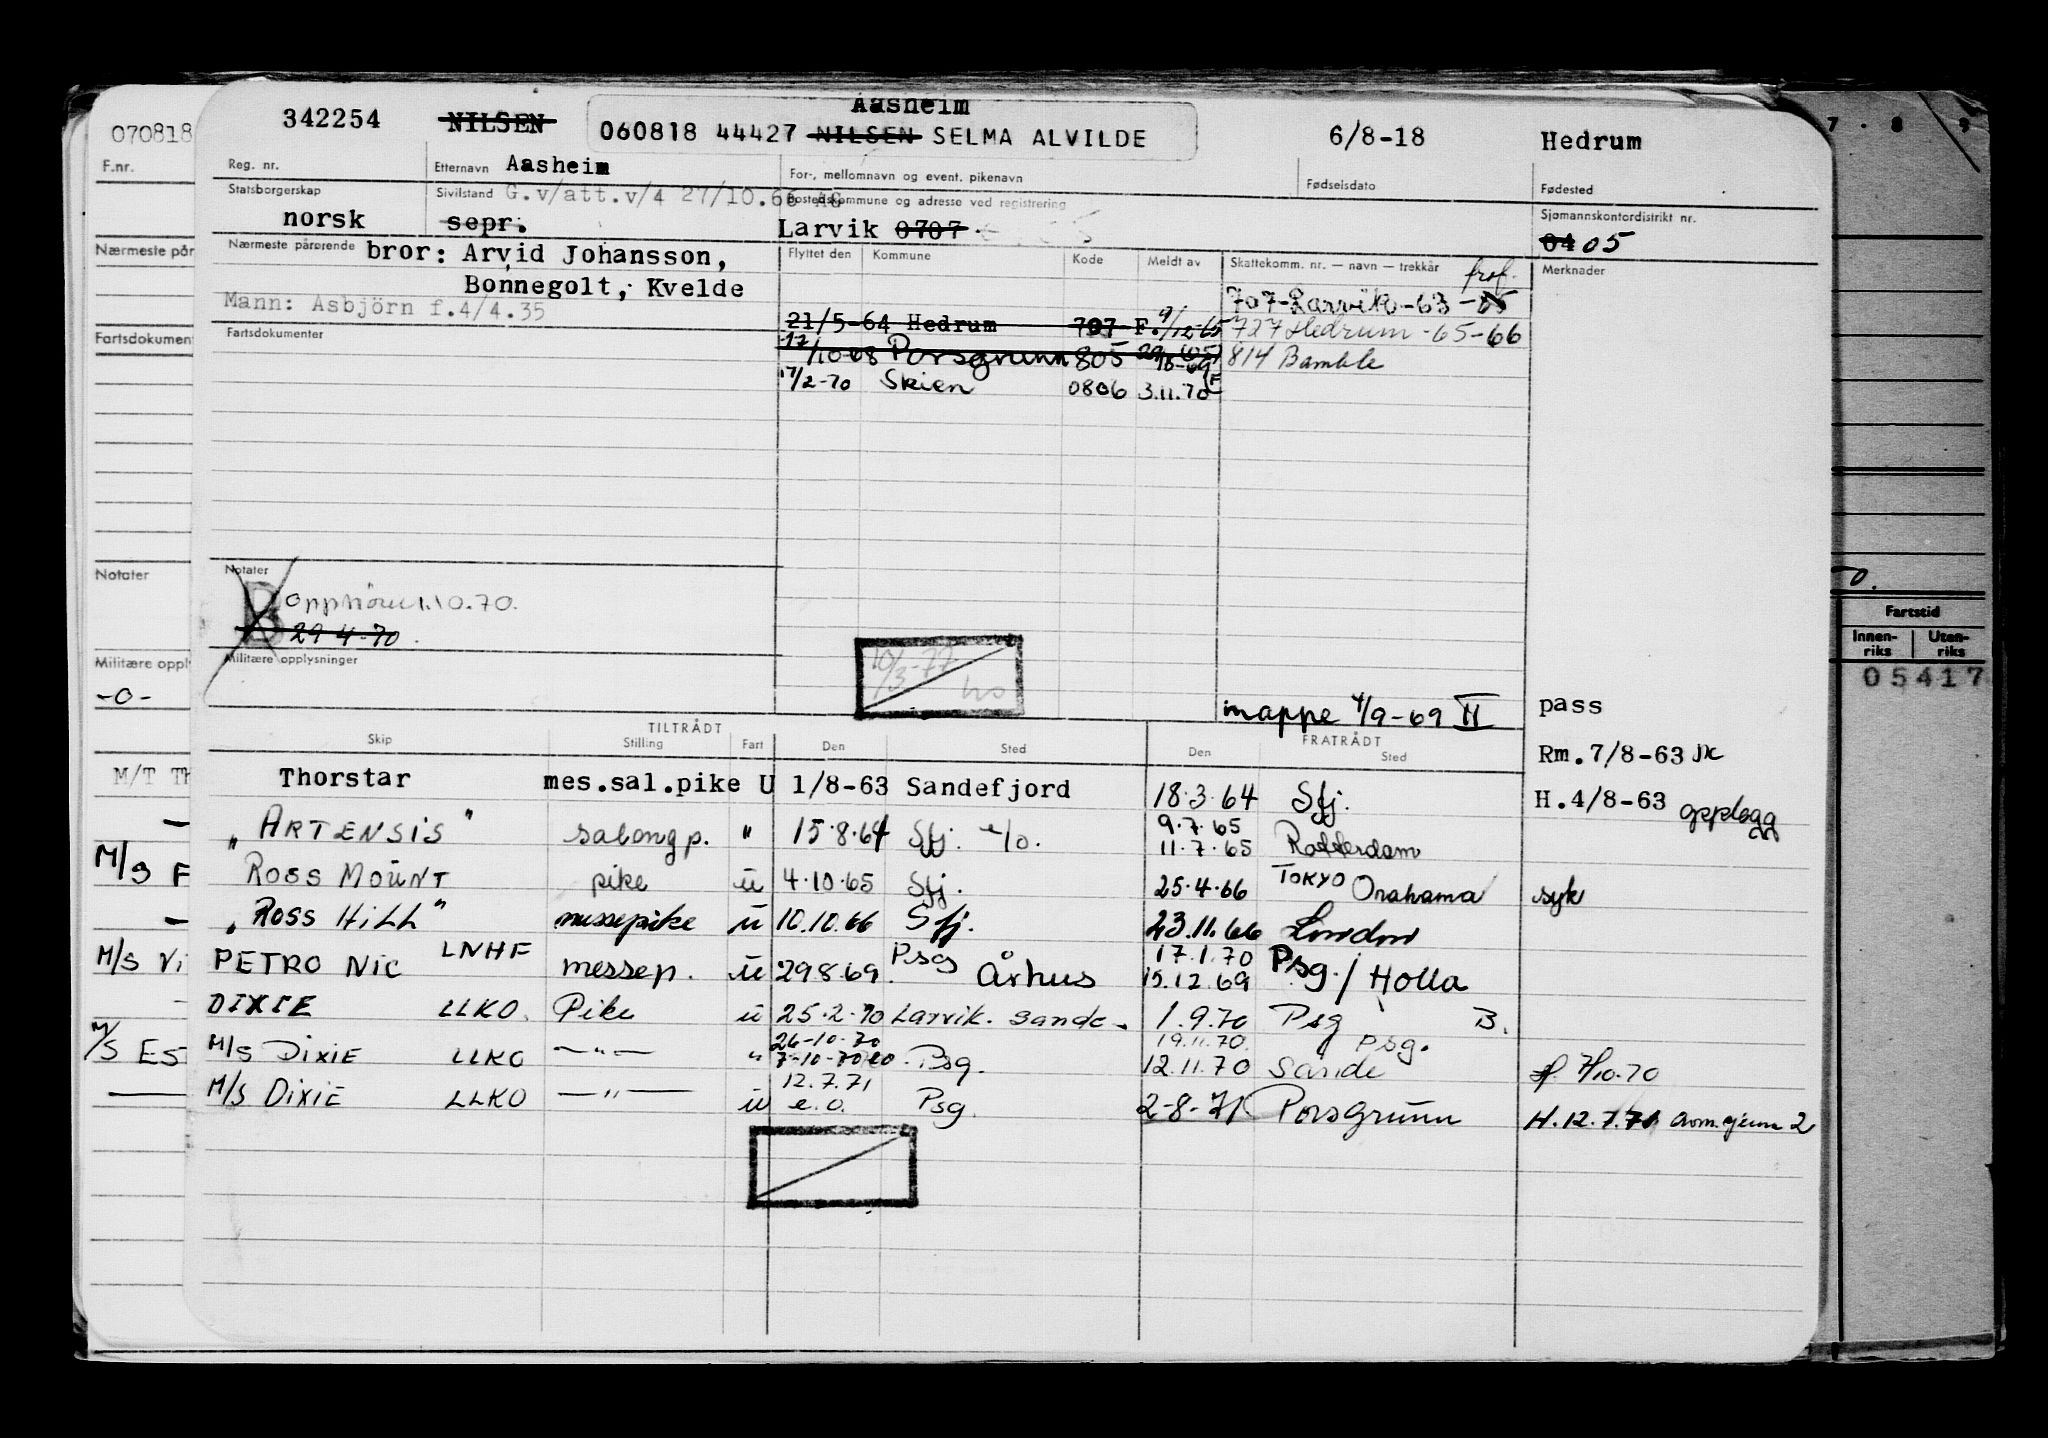 070818
F.nr.
Nærmeste pår
Fartsdokumen
Notater
Militære oppl
-0-
M/T Th
M/S F
M/S Vi
M/S ES
342254 NILSEN Aasheim
060818 44427 NILSEN SELMA ALVILDE 6/8-18 Hedrum
Reg. nr. Etternavn Aasheim For-, mellomnavn og event. pikenavn Fødselsdato Fødested
Statsborgerskap Sivilstand G.v/att.v/4 27/10.66 AG Bostedskommune og adresse ved registrering Sjømannskontordistrikt nr.
norsk sepr. Larvik 0707 04 05
Nærmeste pårørende bror: Arvid Johansson, Flyttet den Kommune Kode Meldt av Skattekomm. nr. — navn — trekkår Merknader
Bonnegolt, Kvelde 707-Larvik-63-
Mann: Asbjörn f.4/4.35
Fartsdokumenter 21/5-64 Hedrum 707 F. 9/12-65 727 Hedrum -65-66
17/10-68 Porsgrunn 805 814 Bamble
17/2-70 Skien 0806 3.11.70
Notater
opphører 1.10.70.
29-4-70.
Militære opplysninger
10/3-77
mappe 4/9-69 II pass
TILTRÅDT FRATRÅDT
Skip Stilling Fart Den Sted Den Sted
Rm.7/8-63
Thorstar mes.sal.pike U 1/8-63 Sandefjord 18.3.64 Sfj. H.4/8-63 opplegg
"ARTENSIS" salong p. " 15.8.64 Sfj. 9.7.65
11.7.65 Rotterdam
ROSS MOUNT pike u 4.10.65 Sfj. 25.4.66 TOKYO Onahama syk
"ROSS HILL" messepike u 10.10.66 Sfj. 23.11.66 London
PETRO NIC LNHF messep. u 29.8.69. Psg Århus 17.1.70 Psg./Holla
15.12.69
DIXIE LLKO. Pike u 25.2.70 Larvik. Sande. 1.9.70 Psg B.
M/S DIXIE LLKO —"— " 26-10-70 7-10-70 Psg. 19.11.70. Psg.
12.11.70 Sande 7/10.70
M/S DIXIE LLKO —"— u 12.7.71 e.o. Psg. 2-8-71 Porsgrunn H.12.7.71
7 . 8 9
Fartstid
Innen-riks Uten-riks
05417